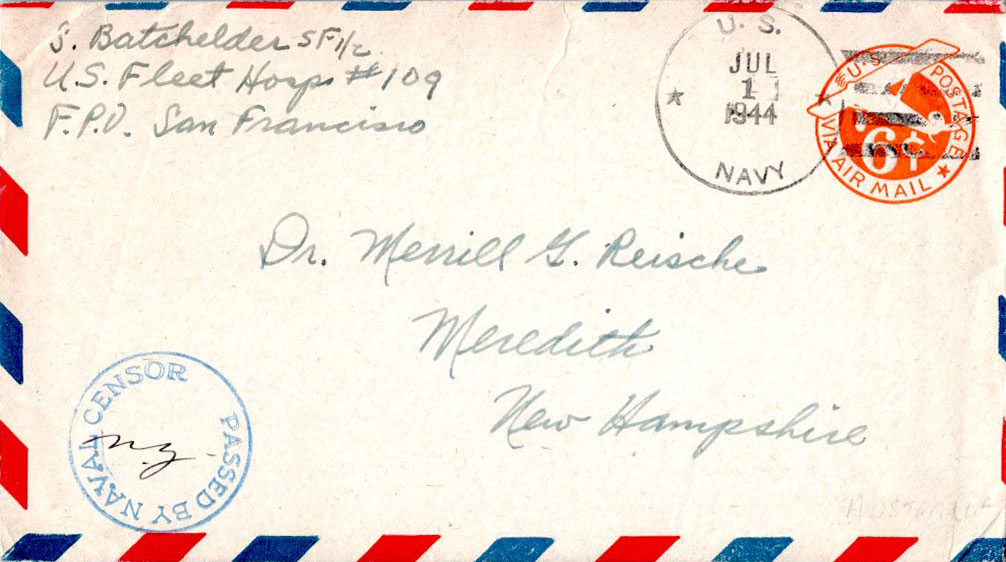 S. Batchelder SF 1/c
U.S. Fleet Hosp. #109
F.P.O. San Francisco
U. S.
JUL
1
1944
NAVY
U.S. POSTAGE
6¢
VIA AIR MAIL
Dr. Merrill G. Reische
Meredith
New Hampshire
PASSED BY NAVAL CENSOR
AUSTRALIA